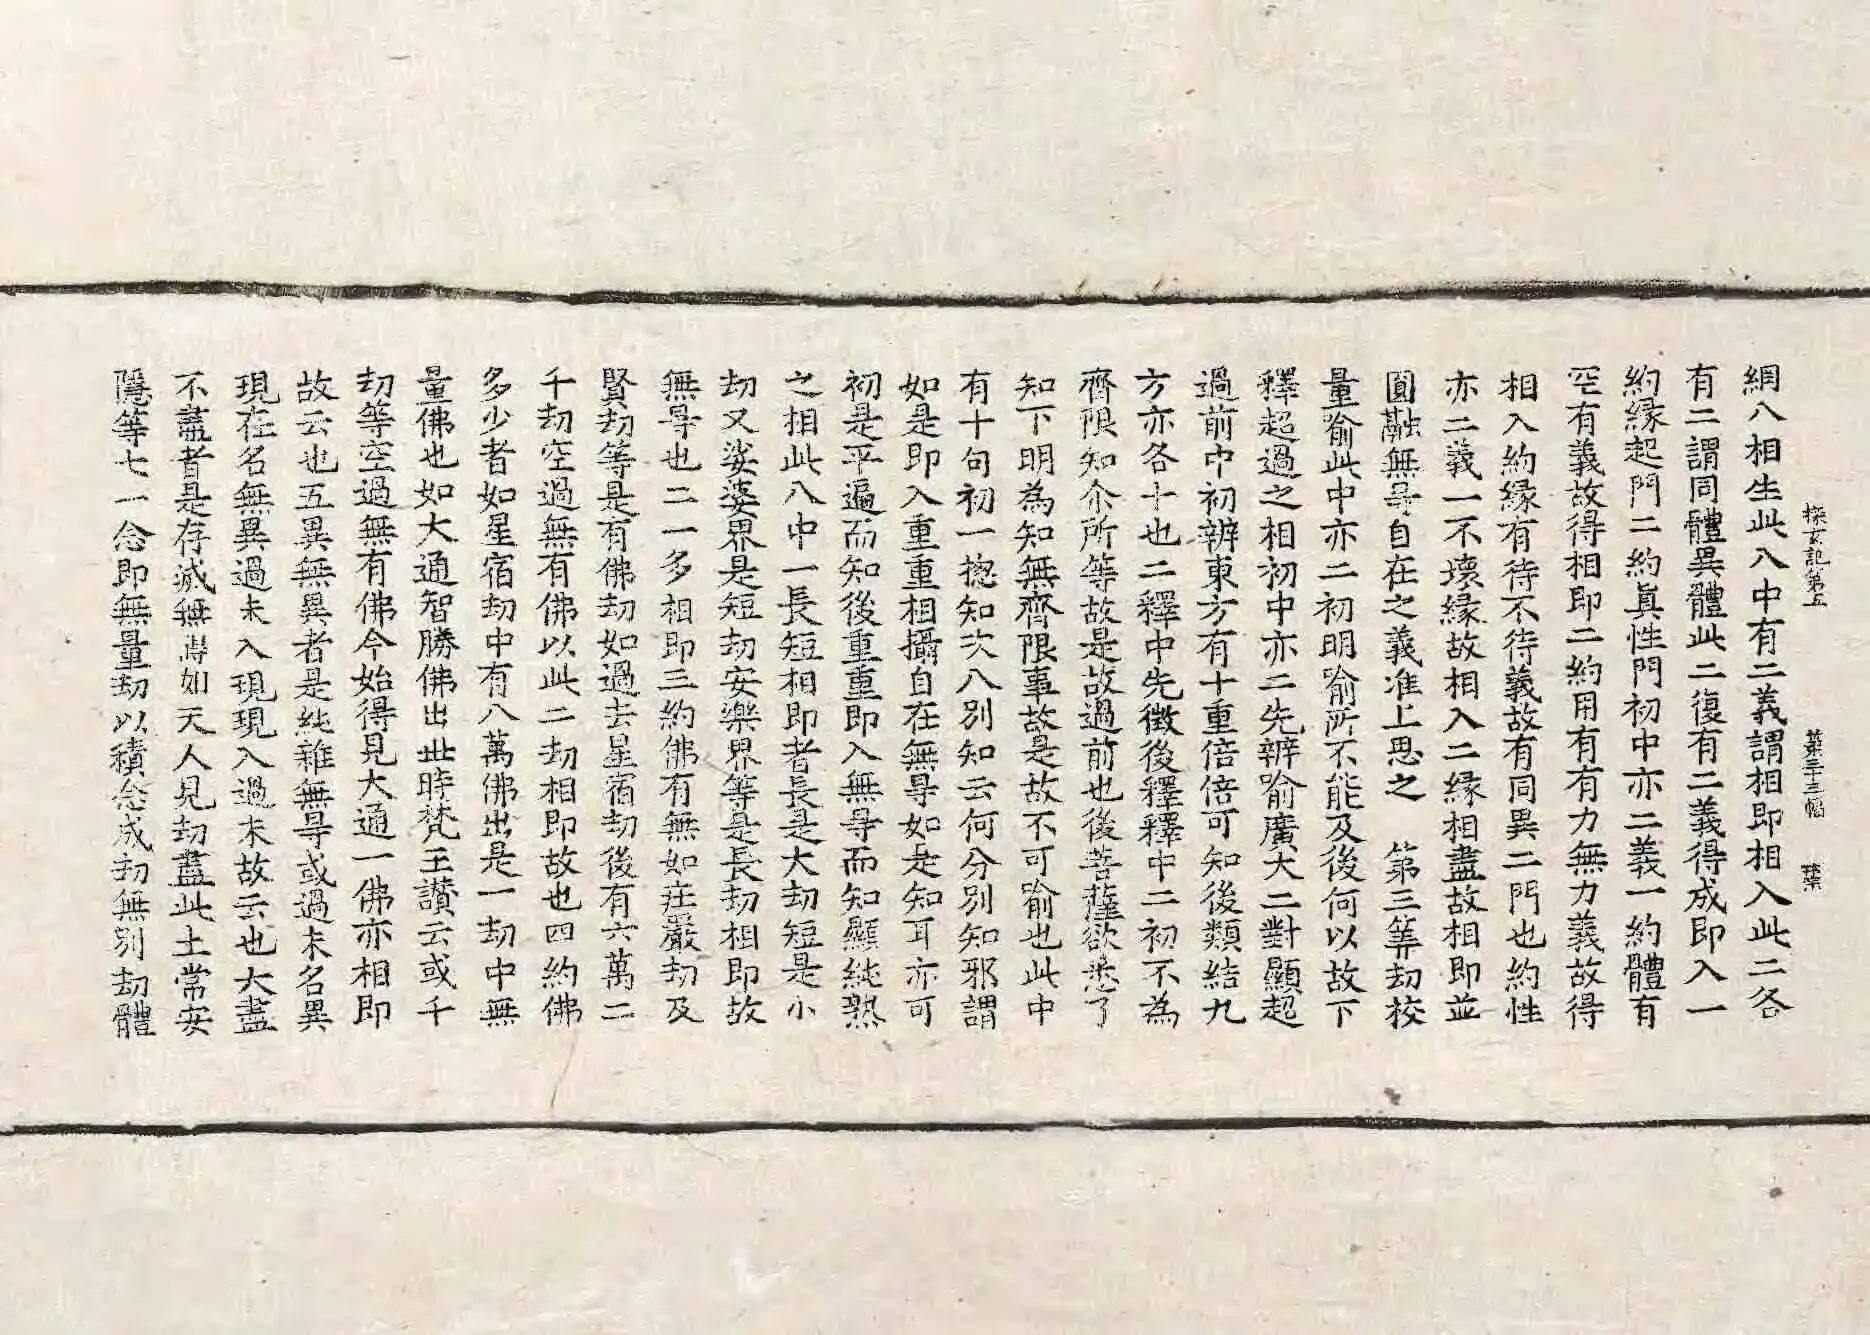 探玄記第五 第三十三幅 葉
網八相生此八中有二義謂相即相入此二各
有二謂同體異體此二復有二義得成即入一
約縁起門二約眞性門初中亦二義一約體有
空有義故得相即二約用有有力無力義故得
相入約縁有待不待義故有同異二門也約性
亦二義一不壞縁故相入二縁相盡故相即並
圓融無㝵自在之義准上思之 第三筭劫校
量喻此中亦二初明喻所不能及後何以故下
釋超過之相初中亦二先辨喻廣大二對顯超
過前中初辨東方有十重倍倍可知後類結九
方亦各十也二釋中先徵後釋釋中二初不為
齊限知尒所等故是故過前也後菩薩欲悉了
知下明為知無齊限事故是故不可喻也此中
有十句初一揔知次八別知云何分別知邪謂
如是即入重重相攝自在無㝵如是知耳亦可
初是平遍而知後重重即入無㝵而知顯純熟
之相此八中一長短相即者長是大劫短是小
劫又娑婆界是短劫安樂界等是長劫相即故
無㝵也二一多相即三約佛有無如莊嚴劫及
賢劫等是有佛劫如過去星宿劫後有六萬二
千劫空過無有佛以此二劫相即故也四約佛
多少者如星宿劫中有八萬佛出是一劫中無
量佛也如大通智勝佛出世時梵王讃云或千
劫等空過無有佛今始得見大通一佛亦相即
故云也五異無異者是純雜無㝵或過未名異
現在名無異過未入現現入過未故云也大盡
不盡者是存滅無㝵如天人見劫盡此土常安
隱等七一念即無量劫以積念成劫無別劫體